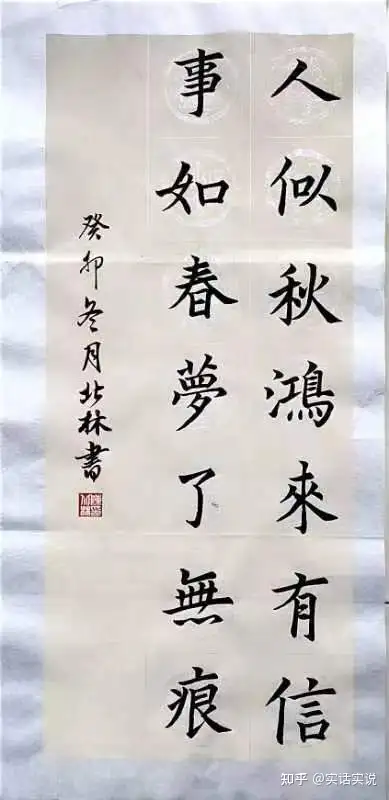 人似秋鴻來有信
事如春夢了無痕
癸卯冬月北林書
知乎 @实话实说